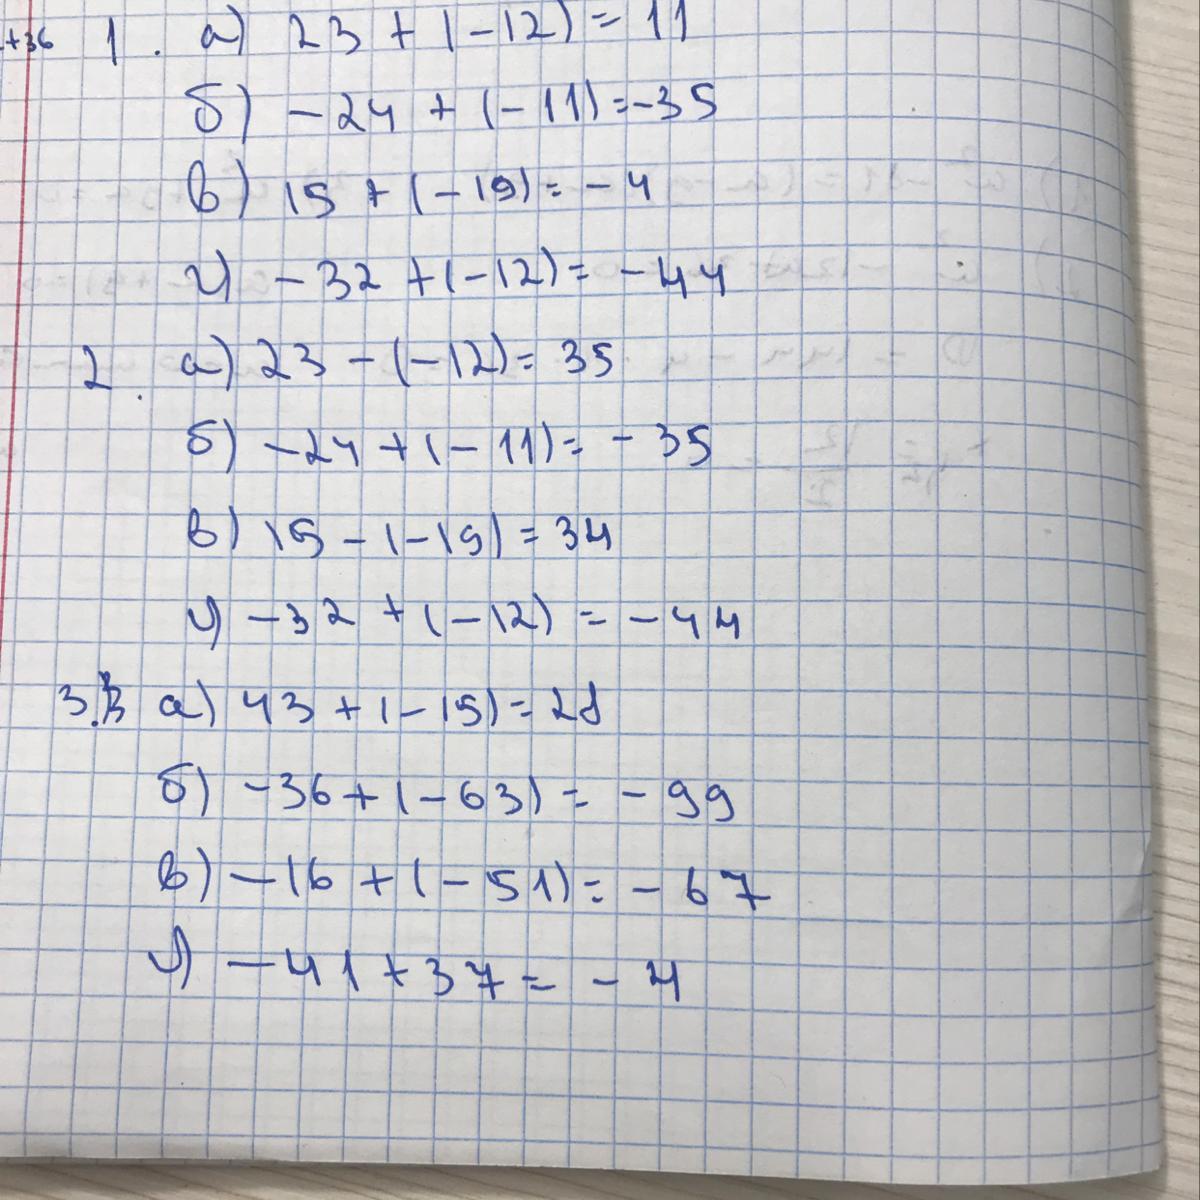 +36
1. а) 23 + (-12) = 11
б) -24 + (-11) = -35
в) 15 + (-19) = -4
г) -32 + (-12) = -44
2. а) 23 - (-12) = 35
б) -24 + (-11) = -35
в) 15 - (-19) = 34
г) -32 + (-12) = -44
3. а) 43 + (-15) = 28
б) -36 + (-63) = -99
в) -16 + (-51) = -67
г) -41 + 37 = -4